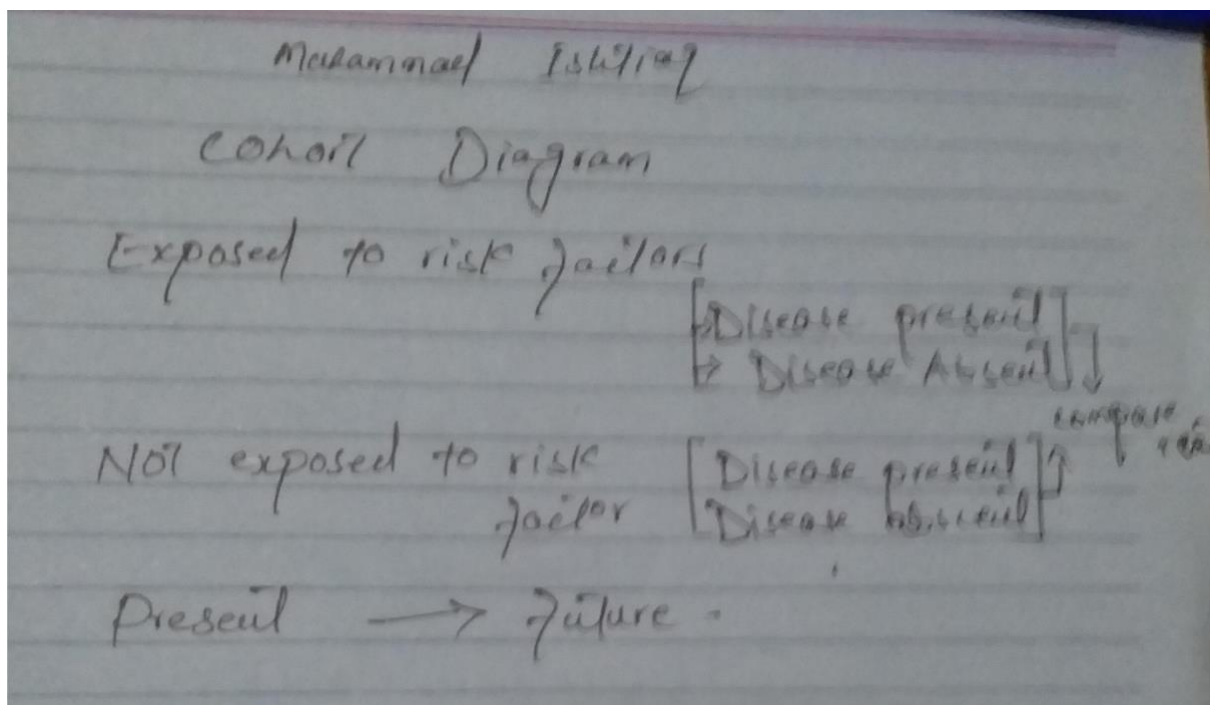 Muhammad Ishtiaq
Cohort Diagram
Exposed to risk factors
Disease present
Disease Absent
compare
Not exposed to risk
factor
Disease present
Disease absent
Present → future